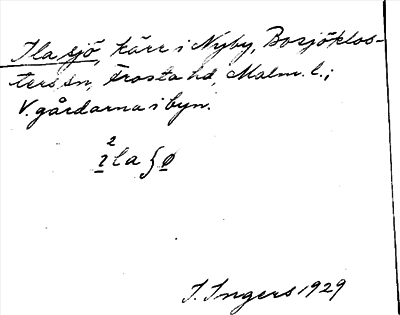 Ila sjö, kärr i Nyby, Bosjöklos-
ters sn, Frosta hd, Malm. l.;
V. gårdarna i byn.
2
ı̲la ʃø̲
I. Ingers 1929